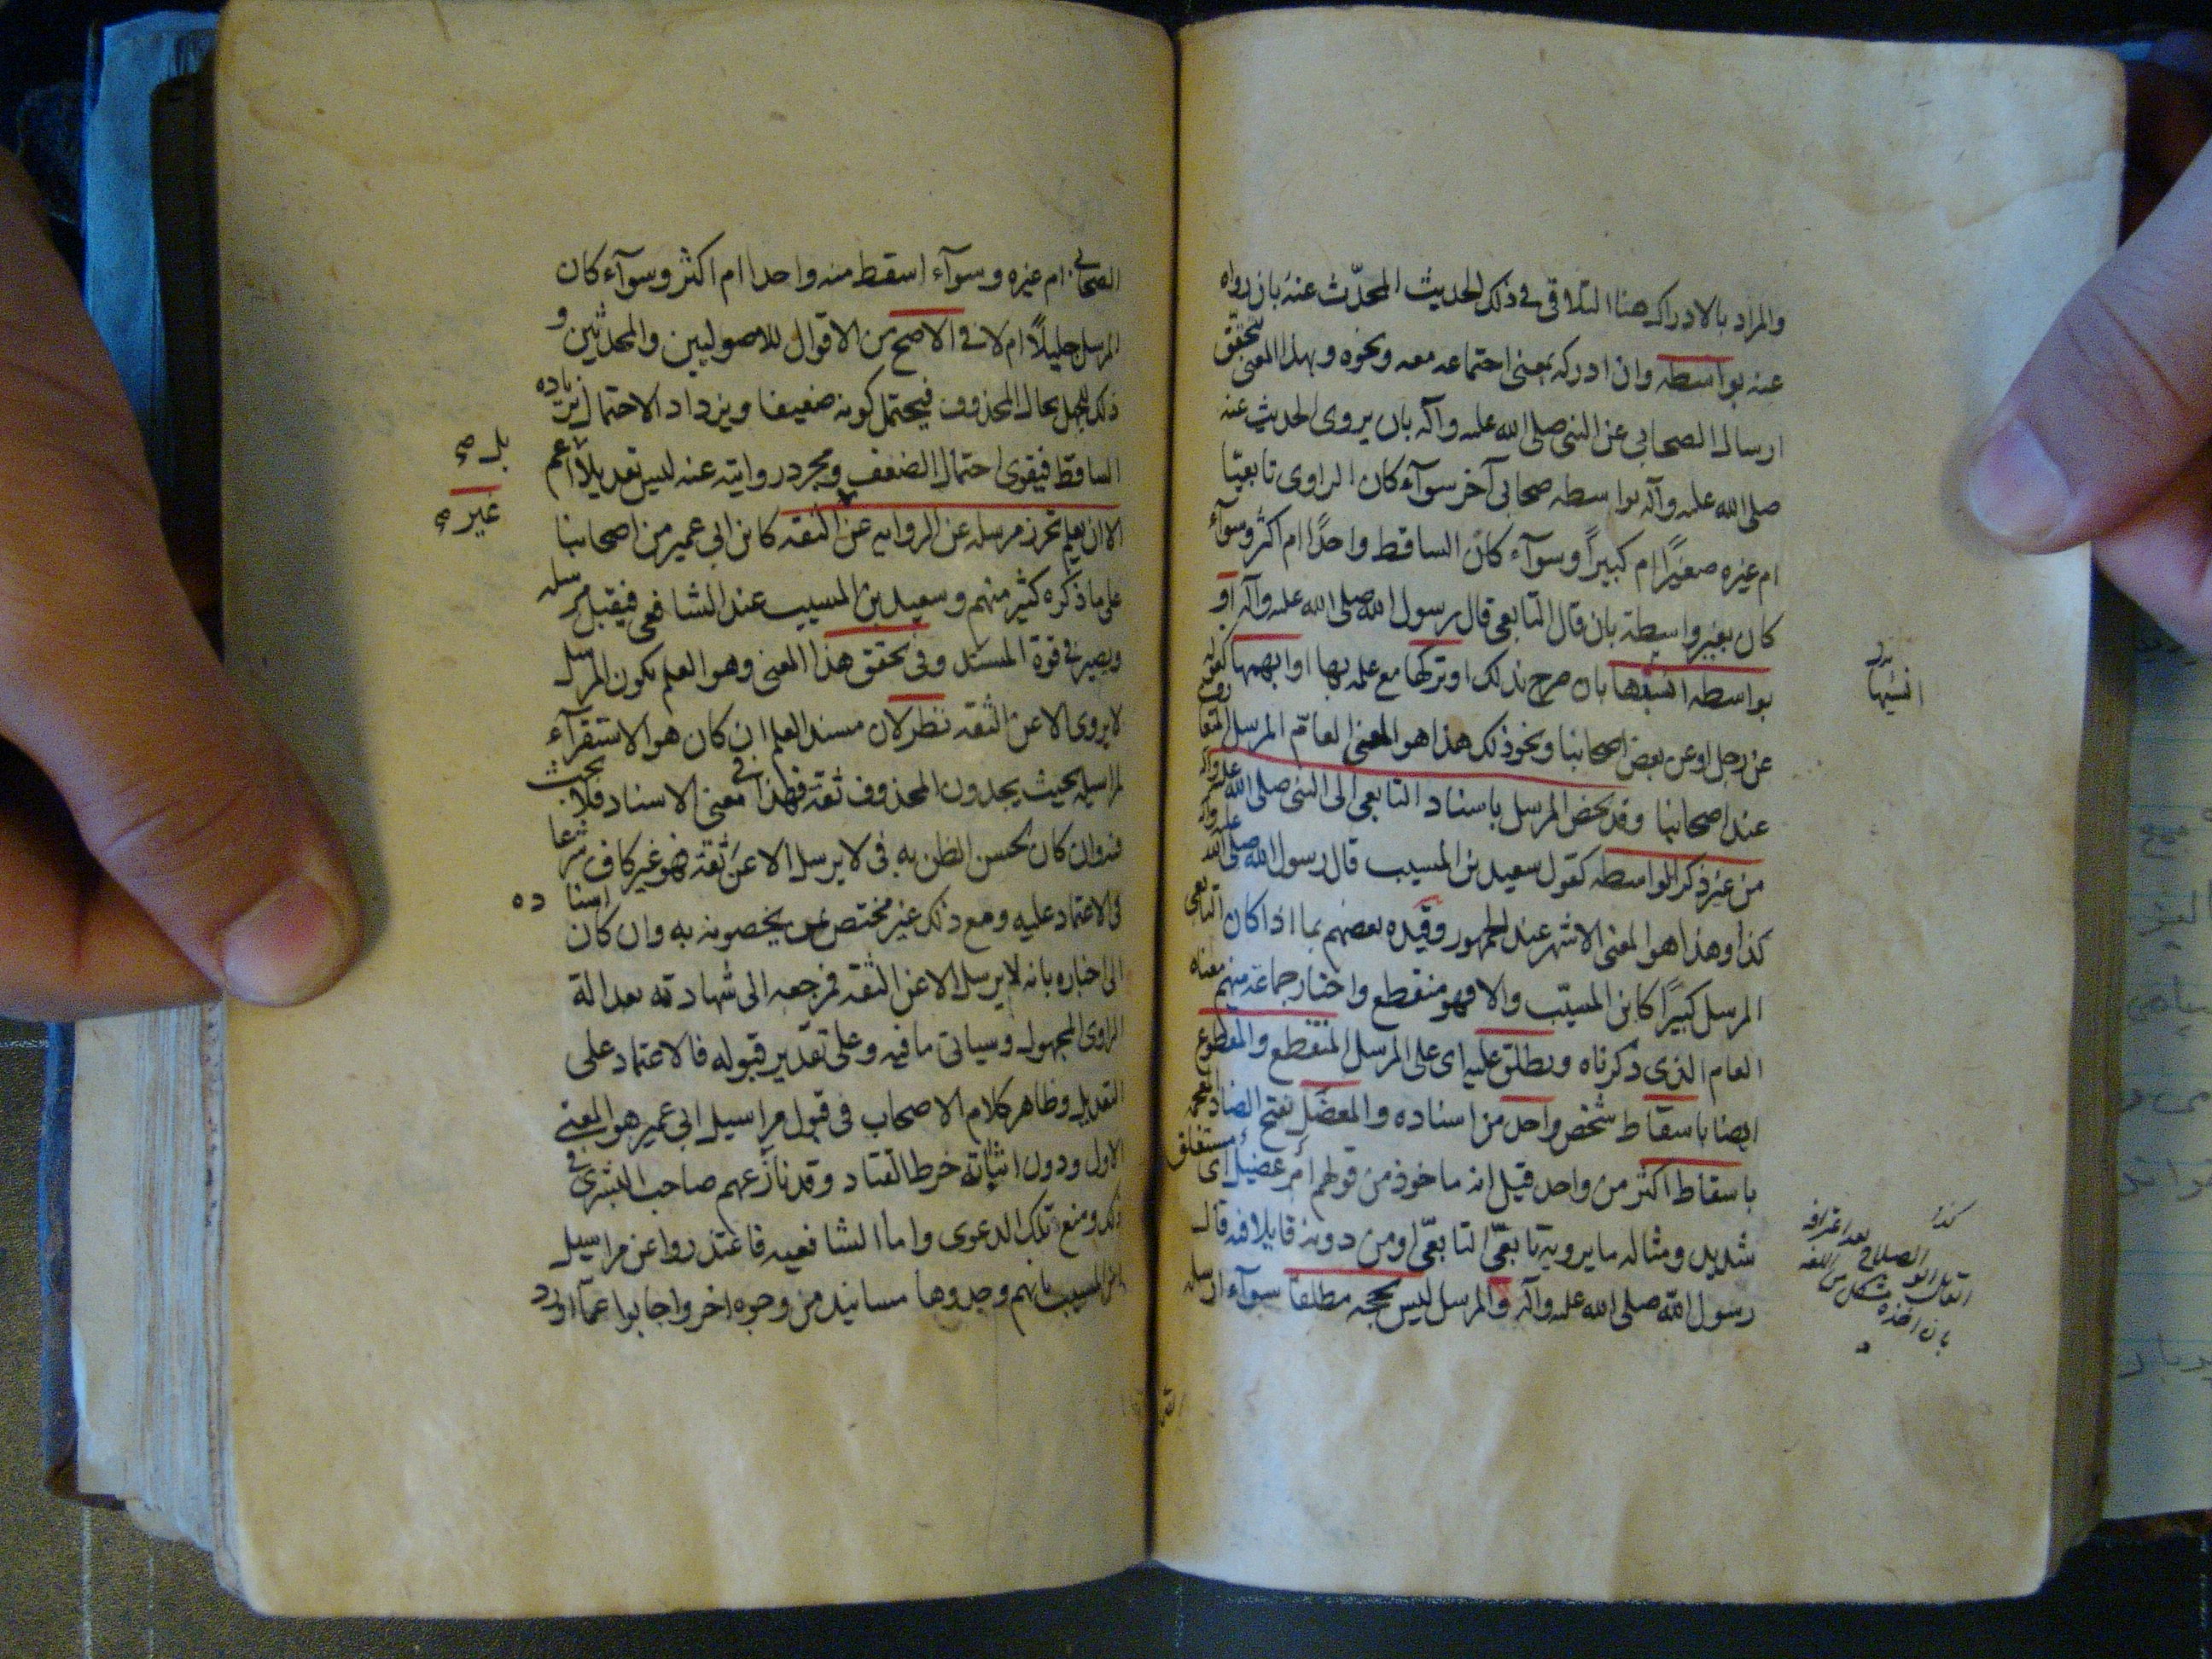 والمراد بالادراك هنا التلاقي في ذلك الحديث المحدّث عنه بان رواه
عنه بواسطه وان ادركه بمعنى اجتماعه معه ونحوه وبهذا المعنى يتحقق
ارسال الصحابي عن النبي صلى الله عليه وآله بان يروى الحديث عنه
صلى الله عليه وآله بواسطه صحابي آخر سوآء كان الراوى تابعيّا
ام غيره صغيرًا ام كبيرًا وسوآء كان الساقط واحدًا ام اكثر وسوآء
كان بغير واسطة بان قال التابعي قال رسول الله صلى الله عليه وآله او
بواسطه نسيها بان صرح بذلك او تركها مع علمه بها او ابهمها كقوله
عن رجل او عن بعض اصحابنا ونحو ذلك هذا هو المعنى العامّ المرسل المتعارف
عند اصحابنا وقد يخص المرسل باسناد التابعي الى النبي صلى الله عليه وآله
من غير ذكر الواسطه كقول سعيد بن المسيب قال رسول الله صلى الله عليه وآله
كذا وهذا هو المعنى الاشهر عند الجمهور وقيّده بعضهم بما اذا كان التابعي
المرسل كبيرًا كابن المسيّب والا فهو منقطع واختار جماعة منهم معناه
العام الذى ذكرناه ويطلق عليه اى على المرسل المنقطع والمقطوع
ايضا باسقاط شخص واحد من اسناده والمعضَل بفتح الضاد المعجمه
باسقاط اكثر من واحد قيل انه ماخوذ من قولهم امر عضيل اى مستغلق
شديد ومثاله ما يرويه تابعيّ التابعيّ او من دونه قايلا فيه قال
رسول الله صلى الله عليه وآله والمرسل ليس بحجه مطلقا سوآء ارسله
انسيها
كذا
بان اخذه مشكل من اللغه
الصحابي ام غيره وسوآء اسقط منه واحدا ام اكثر وسوآء كان
المرسل جليلًا ام لا في الاصح من الاقوال للاصوليين والمحدثين و
ذلك للجهل بحال المحذوف فيحتمل كونه ضعيفا ويزداد الاحتمال بزياده
الساقط فيقوى احتمال الضعف ومجرد روايته عنه ليس تعديلا اعم
الا ان يعلم تحرز مرسله عن الروايه عن الثقه كابن ابي عمير من اصحابنا
على ما ذكره كثير منهم وسعيد بن المسيب عند الشافعي فيقبل مرسله
ويصير في قوة المسند وفي تحقق هذا المعنى وهو العلم بكون المرسل
لا يروى الا عن الثقه نظر لان مستند العلم ان كان هو الاستقرآء
لمراسيله بحيث يجدون المحذوف ثقة فهذا في معنى الاسناد فلا بحث
فيه وان كان لحسن الظن به في لا يرسل الا عن ثقة فهو غير كاف شرعا
في الاعتماد عليه ومع ذلك غير مختص بمن يخصونه به وان كان
اسناده
الى اخباره بانه لا يرسل الا عن الثقه فمرجعه الى شهادته بعدالة
الراوى المجهول وسياتى ما فيه وعلى تقدير قبوله فالاعتماد على
التعديل وظاهر كلام الاصحاب في قبول مراسيل ابي عمير هو المعنى
الاول ودون اثباته خرط القتاد وقد نازعهم صاحب البشرى في
ذلك ومنع تلك الدعوى واما الشافعيه فاعتذروا عن مراسيل
ابن المسيب بانهم وجدوها مسانيد من وجوه اخر واجابوا عما اورد
بل
غير